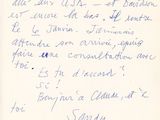 aux USA - et Davidson
est encore là bas. Il rentre
le 6 Janvier. J'aimerais
attendre son arrivée, et puis
faire une consultation avec
toi.
Es tu d'accord?
Si!
Bonjour à Claude, et à
toi
Sandy